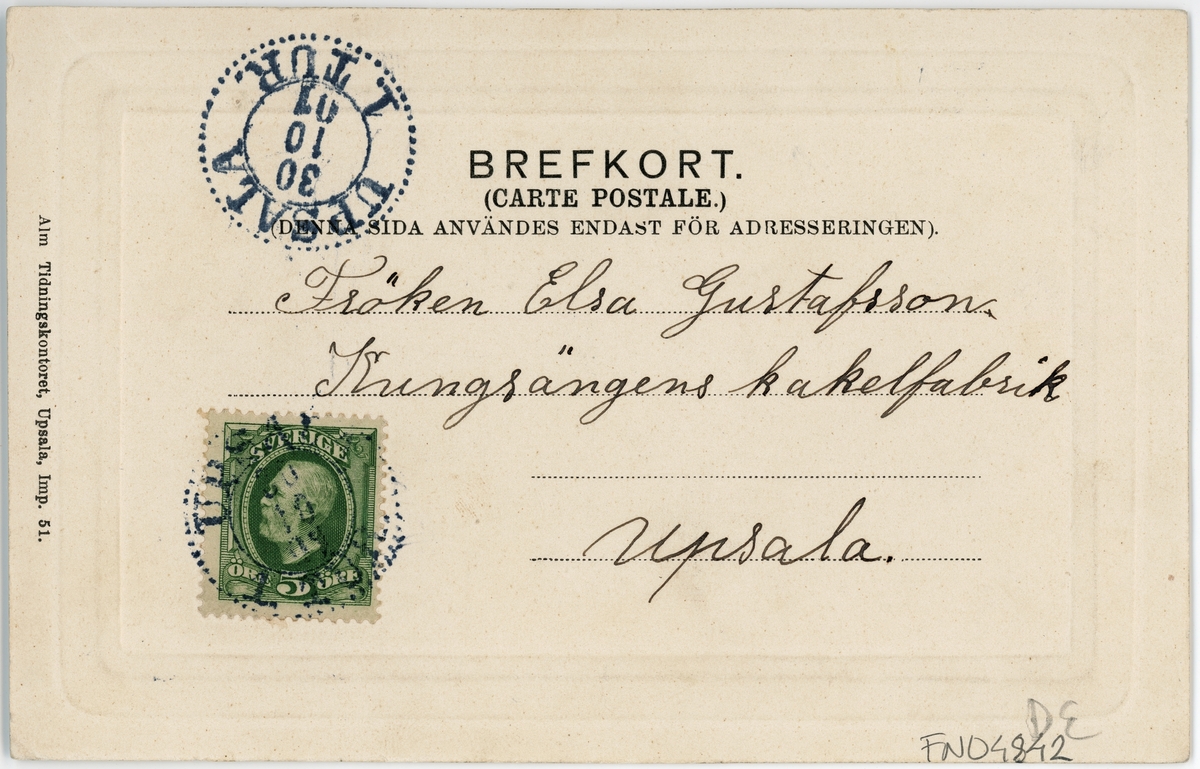 UPSALA
1. TUR.
30
10
01
BREFKORT.
(CARTE POSTALE.)
(DENNA SIDA ANVÄNDES ENDAST FÖR ADRESSERINGEN).
Fröken Elsa Gustafsson.
Kungsängens kakelfabrik
Upsala.
SVERIGE
ÖRE 5 ÖRE
Alm Tidningskontoret, Upsala, Imp. 51.
DE
FNO4842